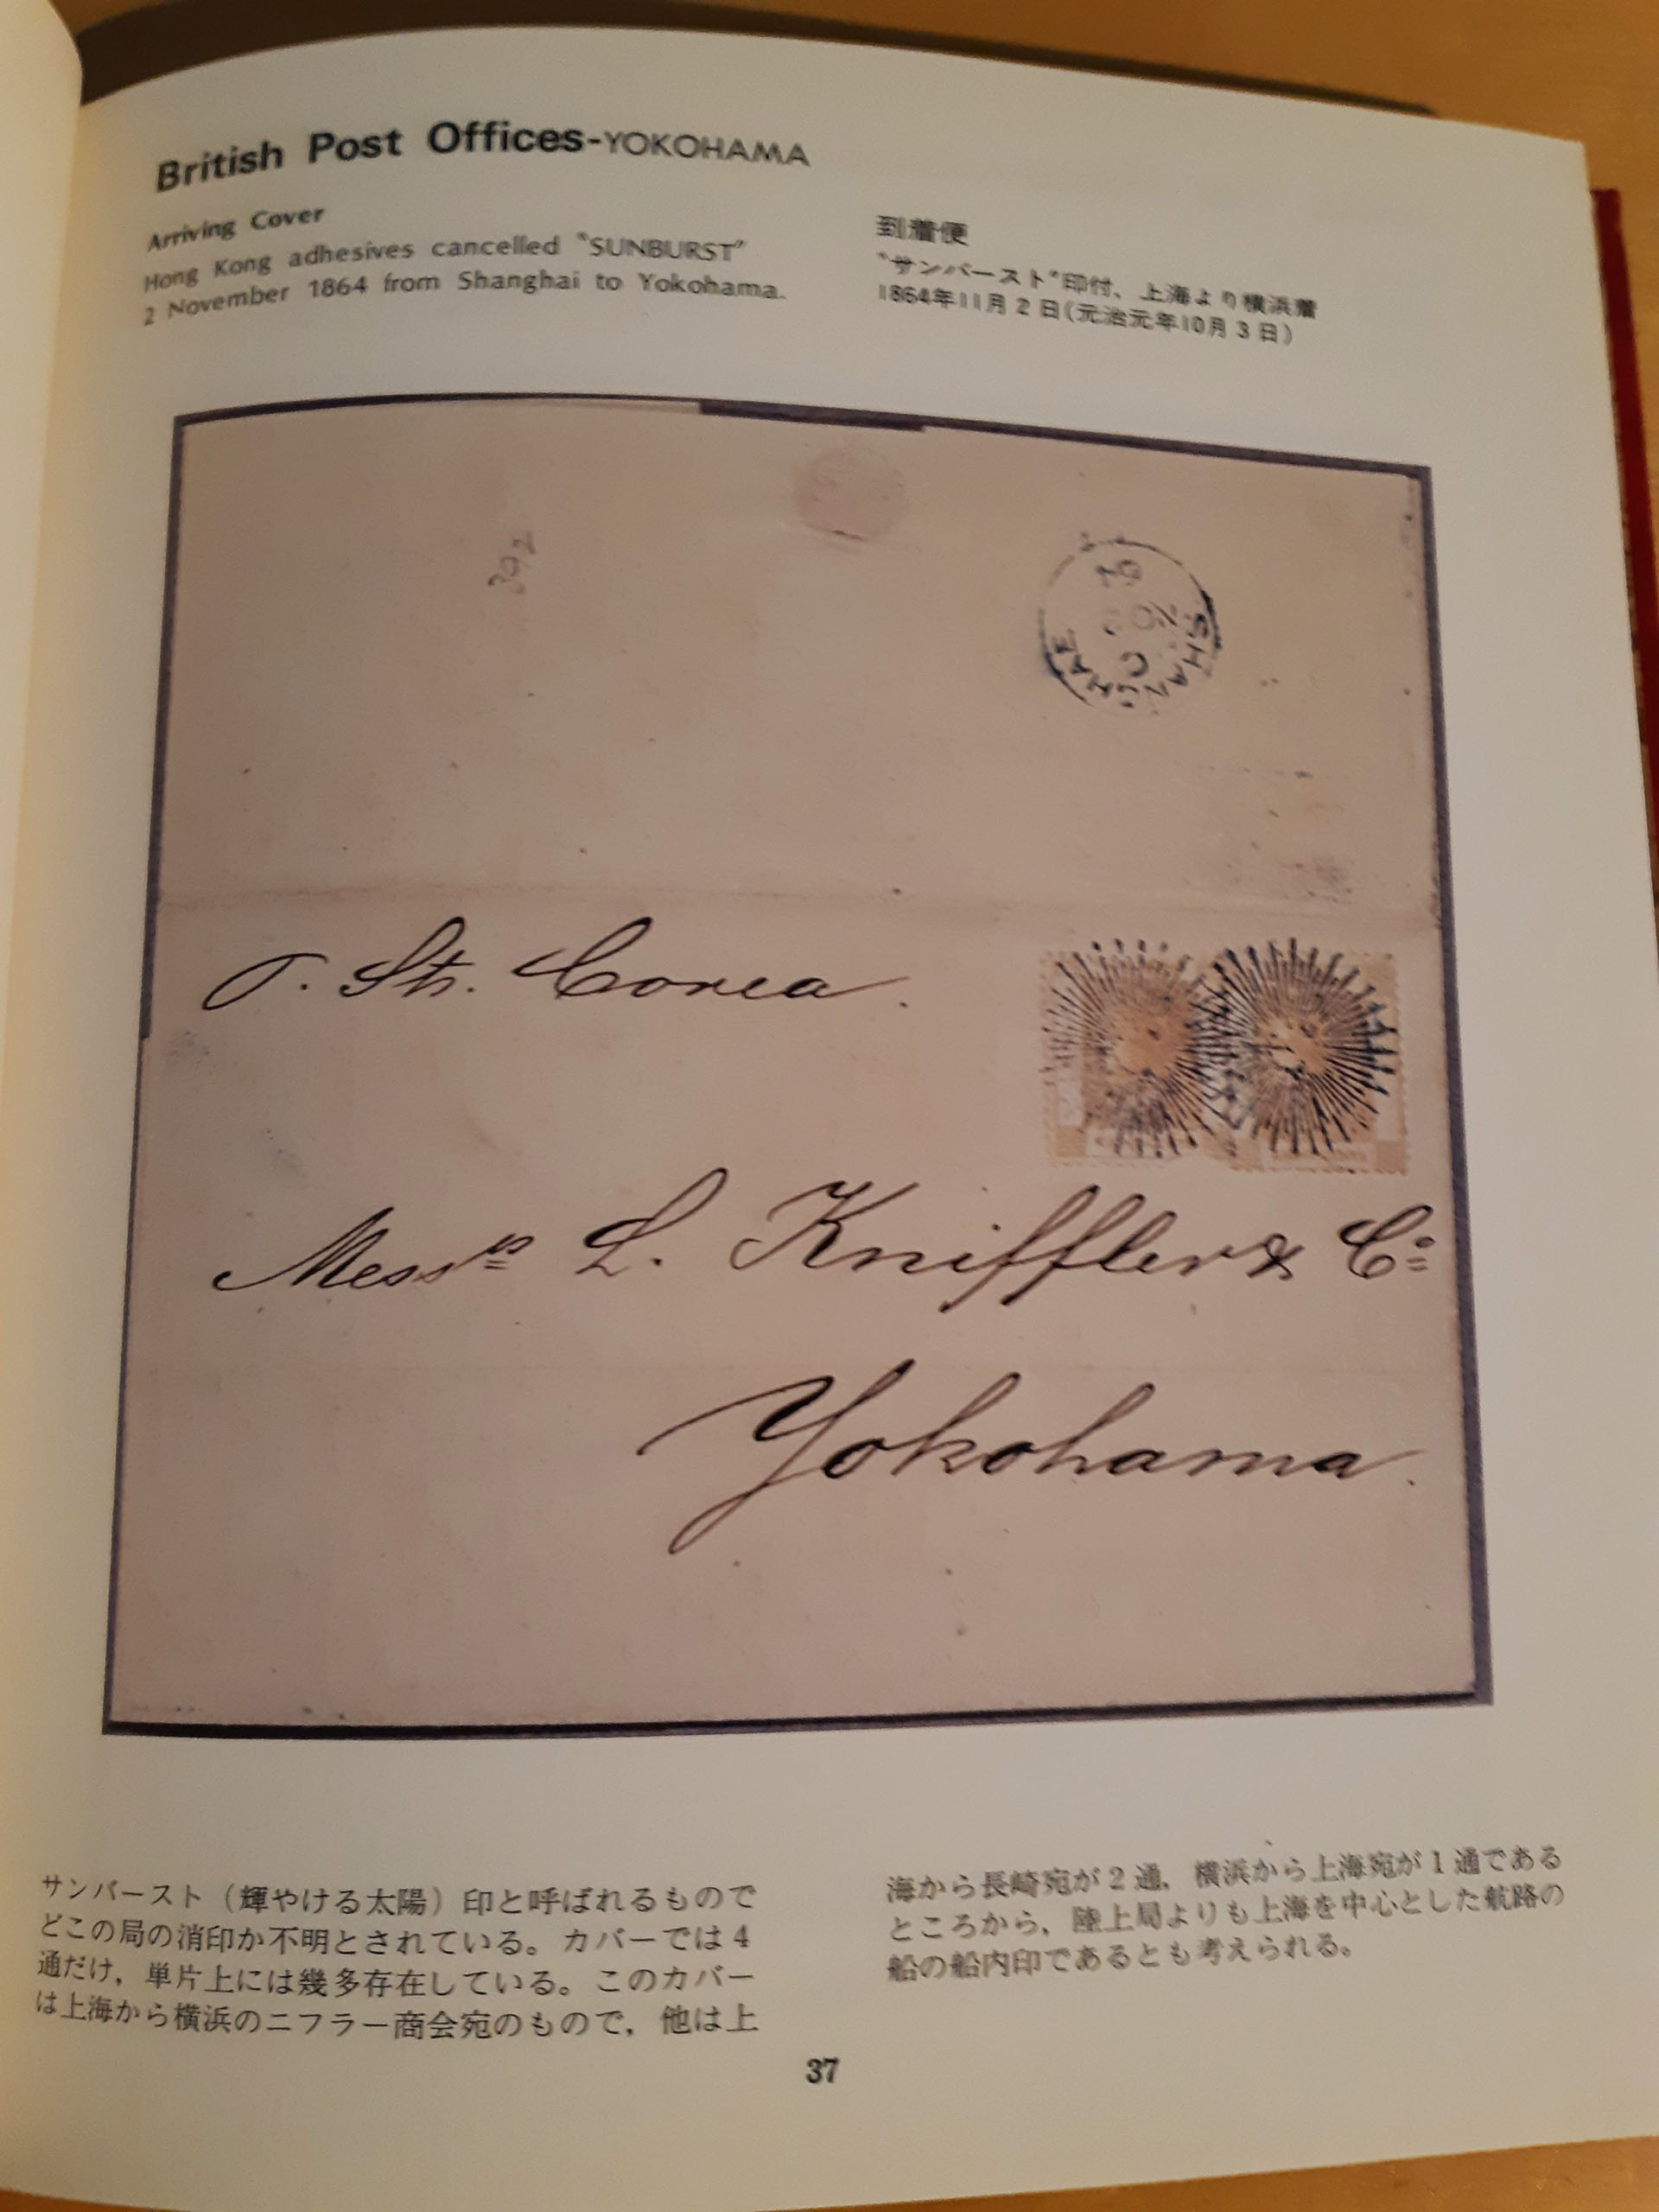 British Post Offices-YOKOHAMA
Arriving Cover
Hong Kong adhesives cancelled "SUNBURST"
2 November 1864 from Shanghai to Yokohama.
到着便
"サンバースト"印付、上海より横浜着
1864年11月2日(元治元年10月3日)
392
SHANGHAE
C
NO
64
St. Corea.
Messrs L. Kniffler & Co
Yokohama.
サンバースト（輝やける太陽）印と呼ばれるもので
どこの局の消印か不明とされている。カバーでは4
通だけ，単片上には幾多存在している。このカバー
は上海から横浜のニフラー商会宛のもので，他は上
海から長崎宛が2通，横浜から上海宛が1通である
ところから，陸上局よりも上海を中心とした航路の
船の船内印であるとも考えられる。
37